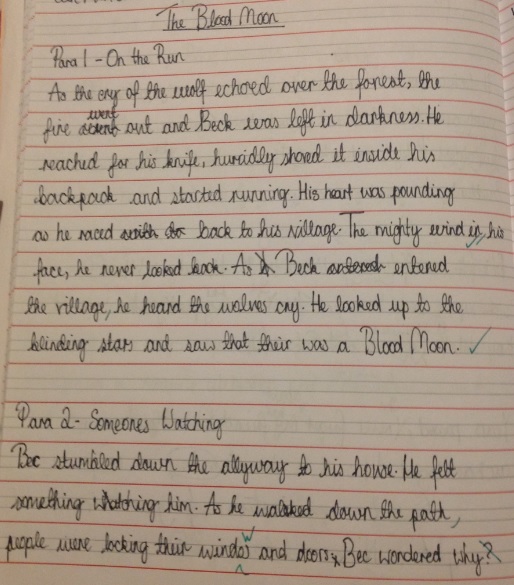 The Blood Moon
Para 1 - On the Run
As the cry of the wolf echoed over the forest, the
fire went out and Beck was left in darkness. He
reached for his knife, huridly shoved it inside his
backpack and started running. His heart was pounding
as he raced back to his village. The mighty wind in his
face, he never looked back. As Beck entered
the village, he heard the wolves cry. He looked up to the
blinding stars and saw that their was a Blood Moon.
Para 2 - Someones Watching
Bec stumbled down the allyway to his house. He felt
something whatching him. As he walked down the path,
people were locking their windows and doors, Bec wondered why?